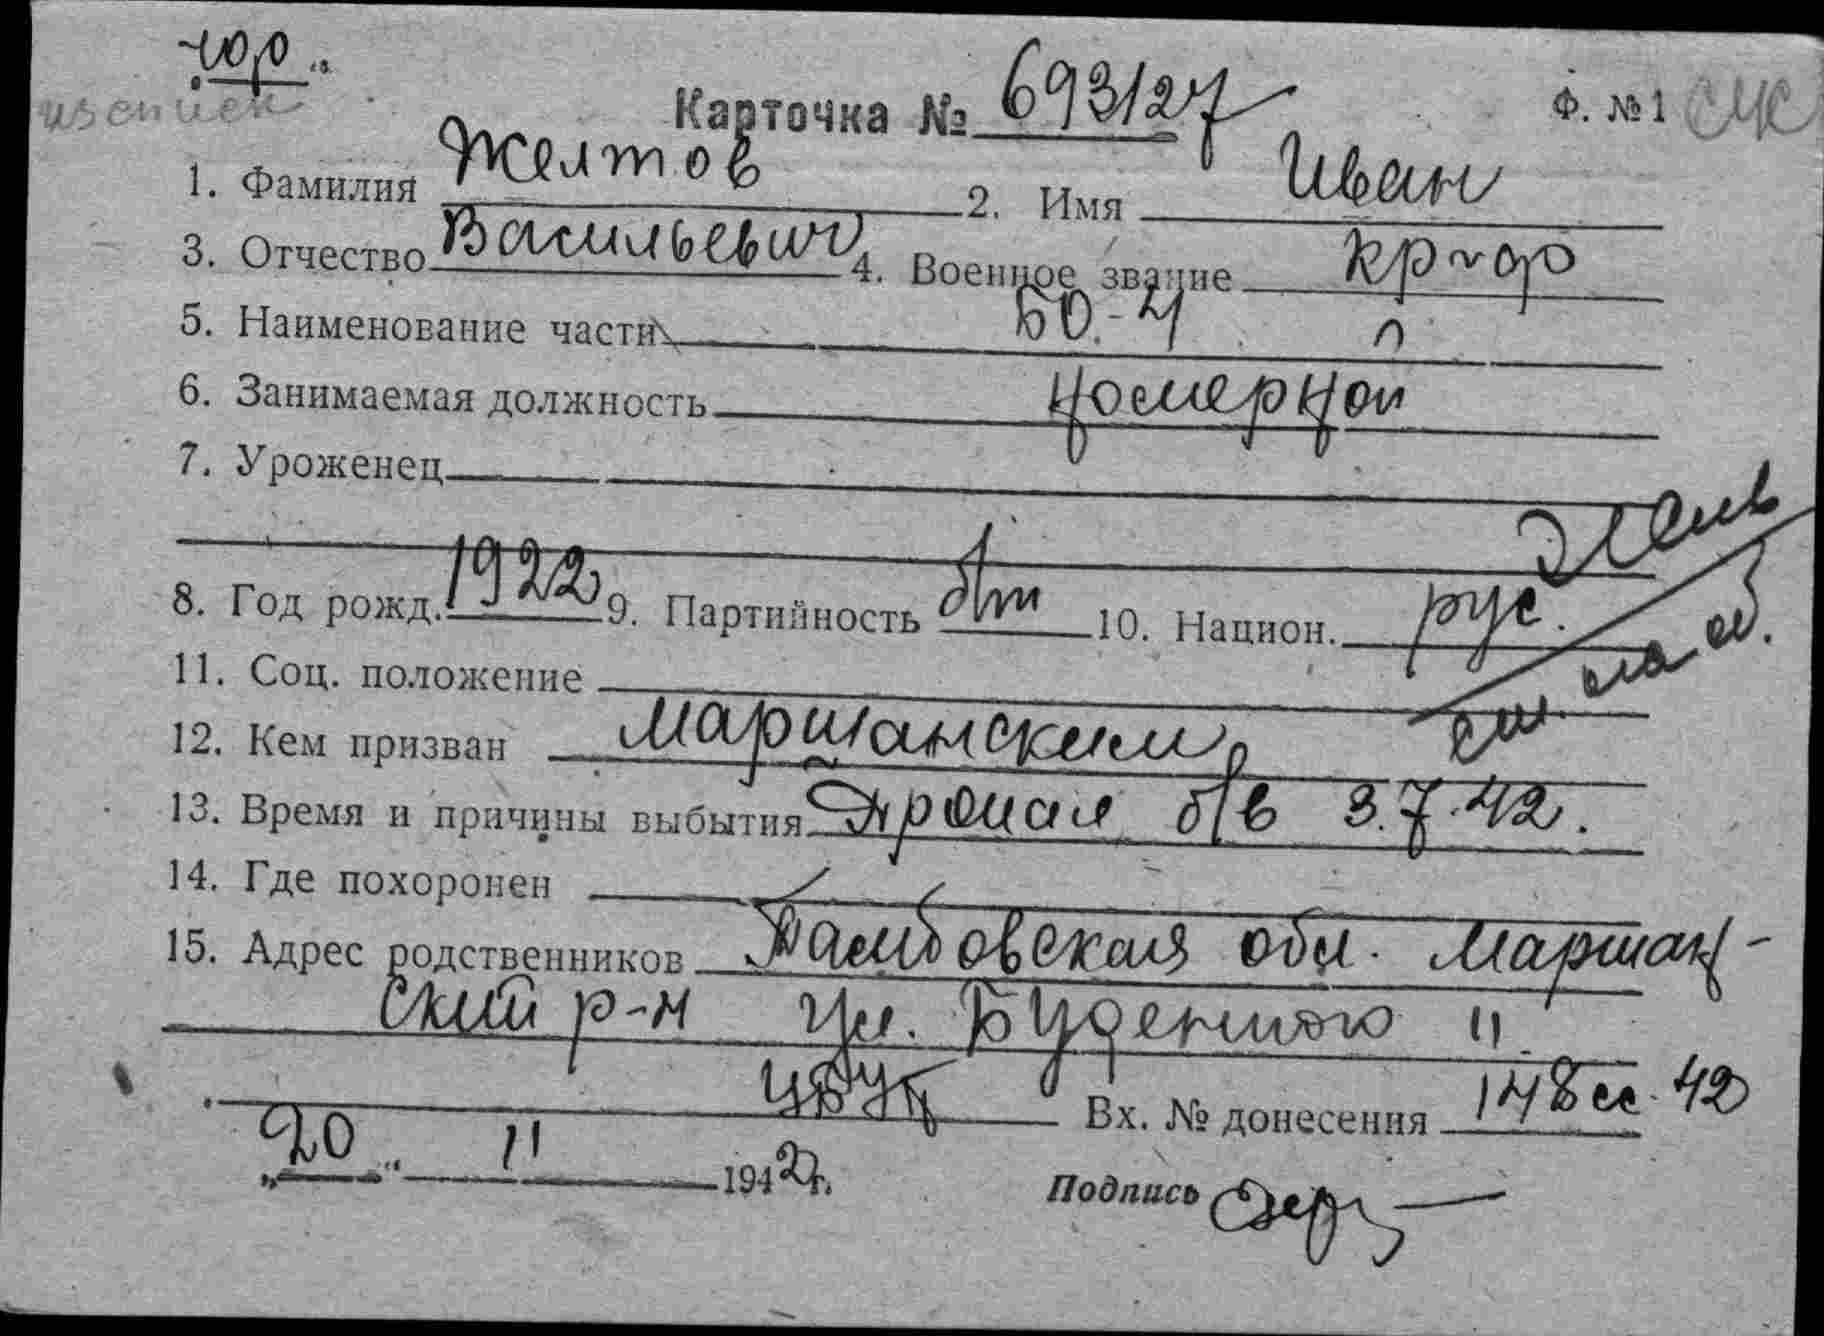 чф
изв писем
Карточка № 693127 Ф. № 1
1. Фамилия Желтов 2. Имя Иван
3. Отчество Васильевич 4. Военное звание кр-ф
5. Наименование части БО.-Ч
6. Занимаемая должность номерной
7. Уроженец
8. Год рожд. 1922 9. Партийность б/п 10. Национ. рус.
см. на об.
11. Соц. положение
12. Кем призван Маршанским
13. Время и причины выбытия Пропал б/в 3.7.42.
14. Где похоронен
15. Адрес родственников Тамбовская обл. Маршан-
ский р-н ул. Буденного 11
Вх. № донесения 148сс. 42
„20“ 11 1942 г. Подпись